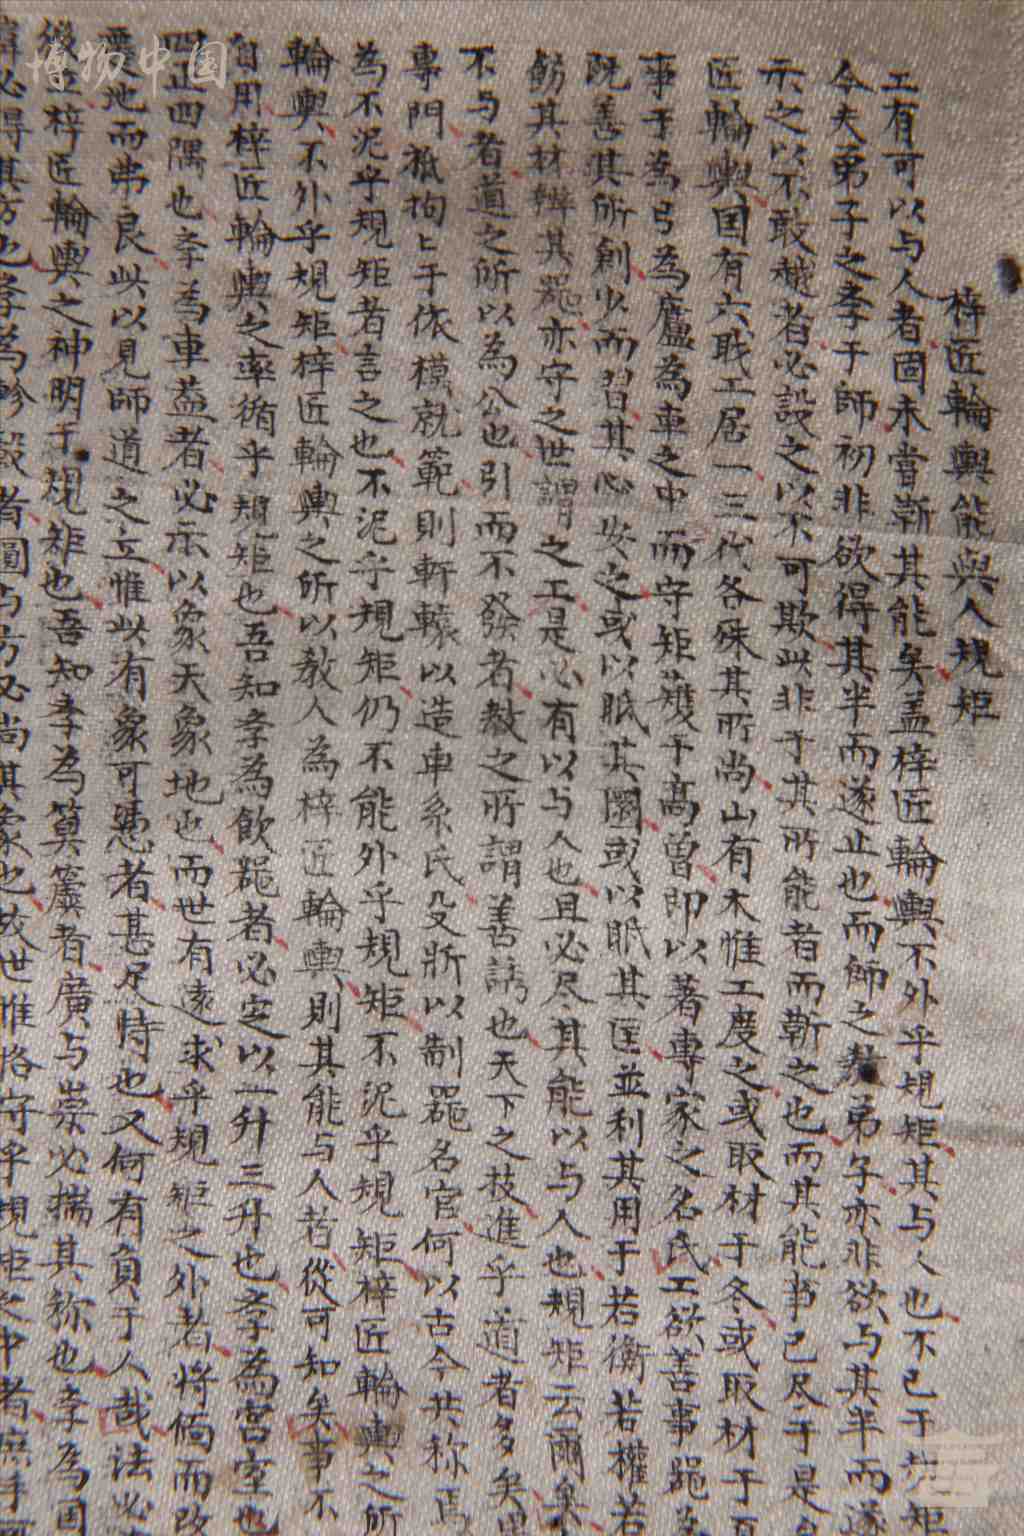 博物中国
梓匠輪輿能與人規矩
工有可以与人者固未嘗靳其能矣盖梓匠輪輿不外乎規矩其与人也不已于規矩
今夫弟子之孝于師初非欲得其半而遂止也而師之教弟子亦非欲与其半而遂
示之以不敢越者必設之以不可欺此非于其所能者而靳之也而其能事已尽于是
匠輪輿国有六职工居一三代各殊其所尚山有木惟工度之或取材于冬或取材于
事于為弓為廬為車之中而守矩矱于高曽即以著專家之名氏工欲善事
既善其所創少而習其心安之或以眡其圜或以眡其匡並利其用于若衡若權若
飭其材辨其噐亦守之世謂之工是必有以与人也且必尽其能以与人也規矩云爾矣
不与者道之所以為公也引而不發者教之所謂善誘也天下之技進乎道者多矣
專門祇拘〻于依模就範則軒轅以造車系氏殳斨以制噐名官何以古今共称焉
為不泥乎規矩者言之也不泥乎規矩仍不能外乎規矩不泥乎規矩梓匠輪輿之所
輪輿不外乎規矩梓匠輪輿之所以教人為梓匠輪輿則其能与人者從可知矣事不
自用梓匠輪輿之率循乎規矩也吾知孝為飲噐者必定以一升三升也孝為宮室也
四正四隅也孝為車盖者必示以象天象地也而世有遠求乎規矩之外者将偭而改
地而弗良此以見師道之立惟此有象可憑者甚足恃也又何有負于人哉法必
梓匠輪輿之神明于規矩也吾知孝為簨簴者廣与崇必揣其称也孝為
必得其方也孝為軫轂者圓与方必尚其象也故世惟恪守乎規矩之中者